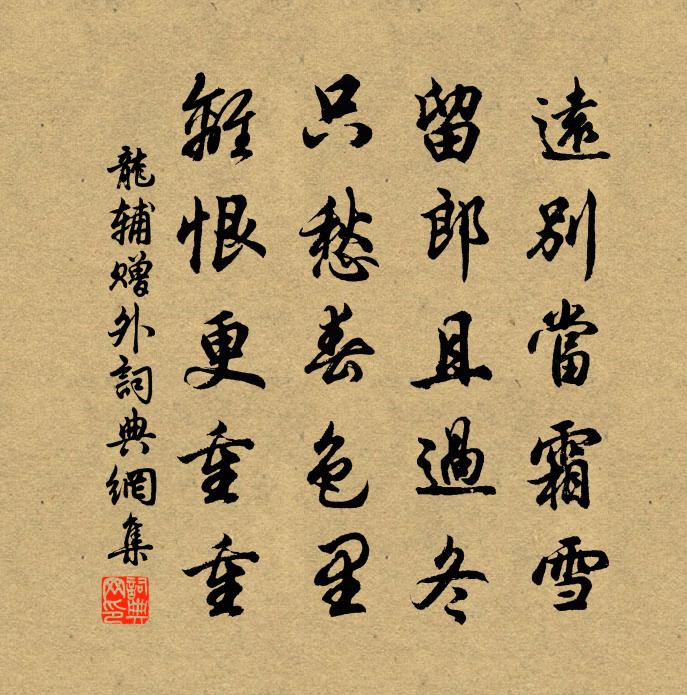 遠別當霜雪
留郎且過冬
只愁春色里
離恨更重重
龍輔贈外詞典網集
詞典網印